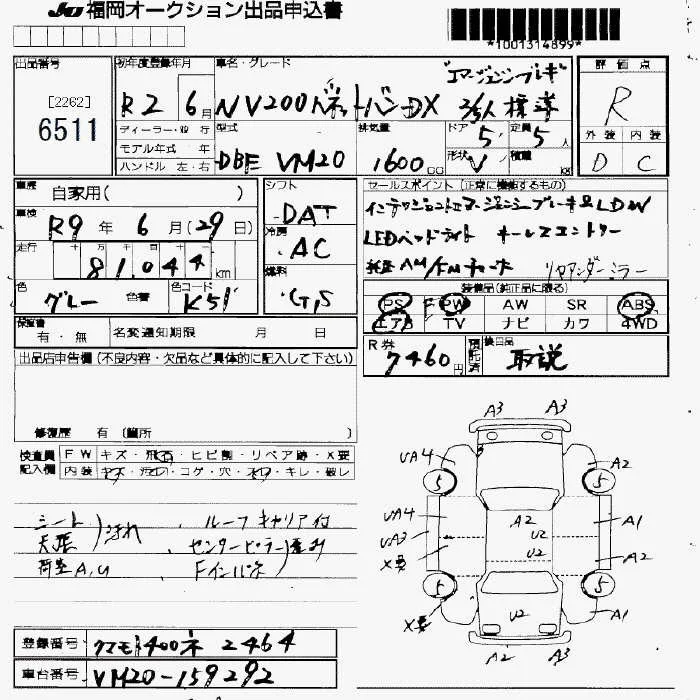 JU 福岡オークション出品申込書
*1001314899*
出品番号
[2262]
6511
初年度登録年月
R2 6月
ディーラー・並行
モデル年式 年
ハンドル 左・右
車名・グレード
"エマージェンシーブレーキ"
NV200バネットバン DX 2/5人 標準
型式
DBF VM20
排気量
1600 cc
ドア 5
形状 V
定員 5人
積量 kg
評価点
R
外装 内装
D C
車歴 自家用( )
車検 R9年 6月(29日)
走行 十 万 千 百 十
81,044 km
色 グレー 色替 色コード K51
シフト
DAT
冷房
AC
燃料
G,S
セールスポイント (正常に機能するもの)
インテリジェントエマージェンシーブレーキ & LDW
LEDヘッドライト キーレスエントリー
純正AM/FMチューナー リヤアンダーミラー
装備品(純正品に限る)
PS PW AW SR ABS
エアB TV ナビ カワ 4WD
保証書 有・無
名変通知期限 月 日
R券 7460円
預託済
後日品 取説
出品店申告欄 (不良内容・欠品など具体的に記入して下さい)
修復歴 有 〔箇所 〕
検査員記入欄
FW キズ・飛石・ヒビ割・リペア跡・X要
内装 キズ・汚れ・コゲ・穴・スレ・キレ・破レ
シート
天張 汚れ
荷室A,U
、ルーフキャリア付
、センターピラー
Fインパネ 歪み
A3 A3
UA4 A2
5 5
UA4 A1
A2
UA3 U2
U2 A2
X要
5 5
X要 U2 A1
A2 A3
登録番号 クマモト400ネ 2464
車台番号 VM20-159292